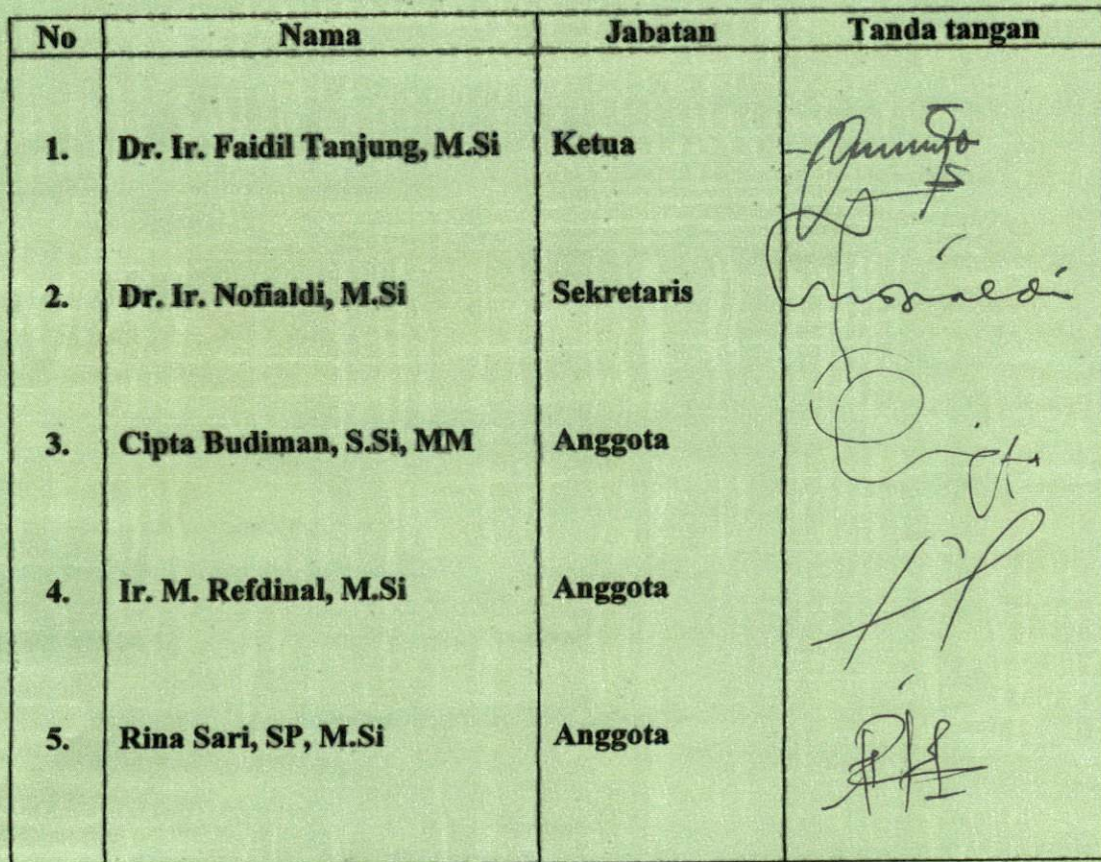 No Nama Jabatan Tanda tangan
1. Dr. Ir. Faidil Tanjung, M.Si Ketua
2. Dr. Ir. Nofialdi, M.Si Sekretaris
3. Cipta Budiman, S.Si, MM Anggota
4. Ir. M. Refdinal, M.Si Anggota
5. Rina Sari, SP, M.Si Anggota